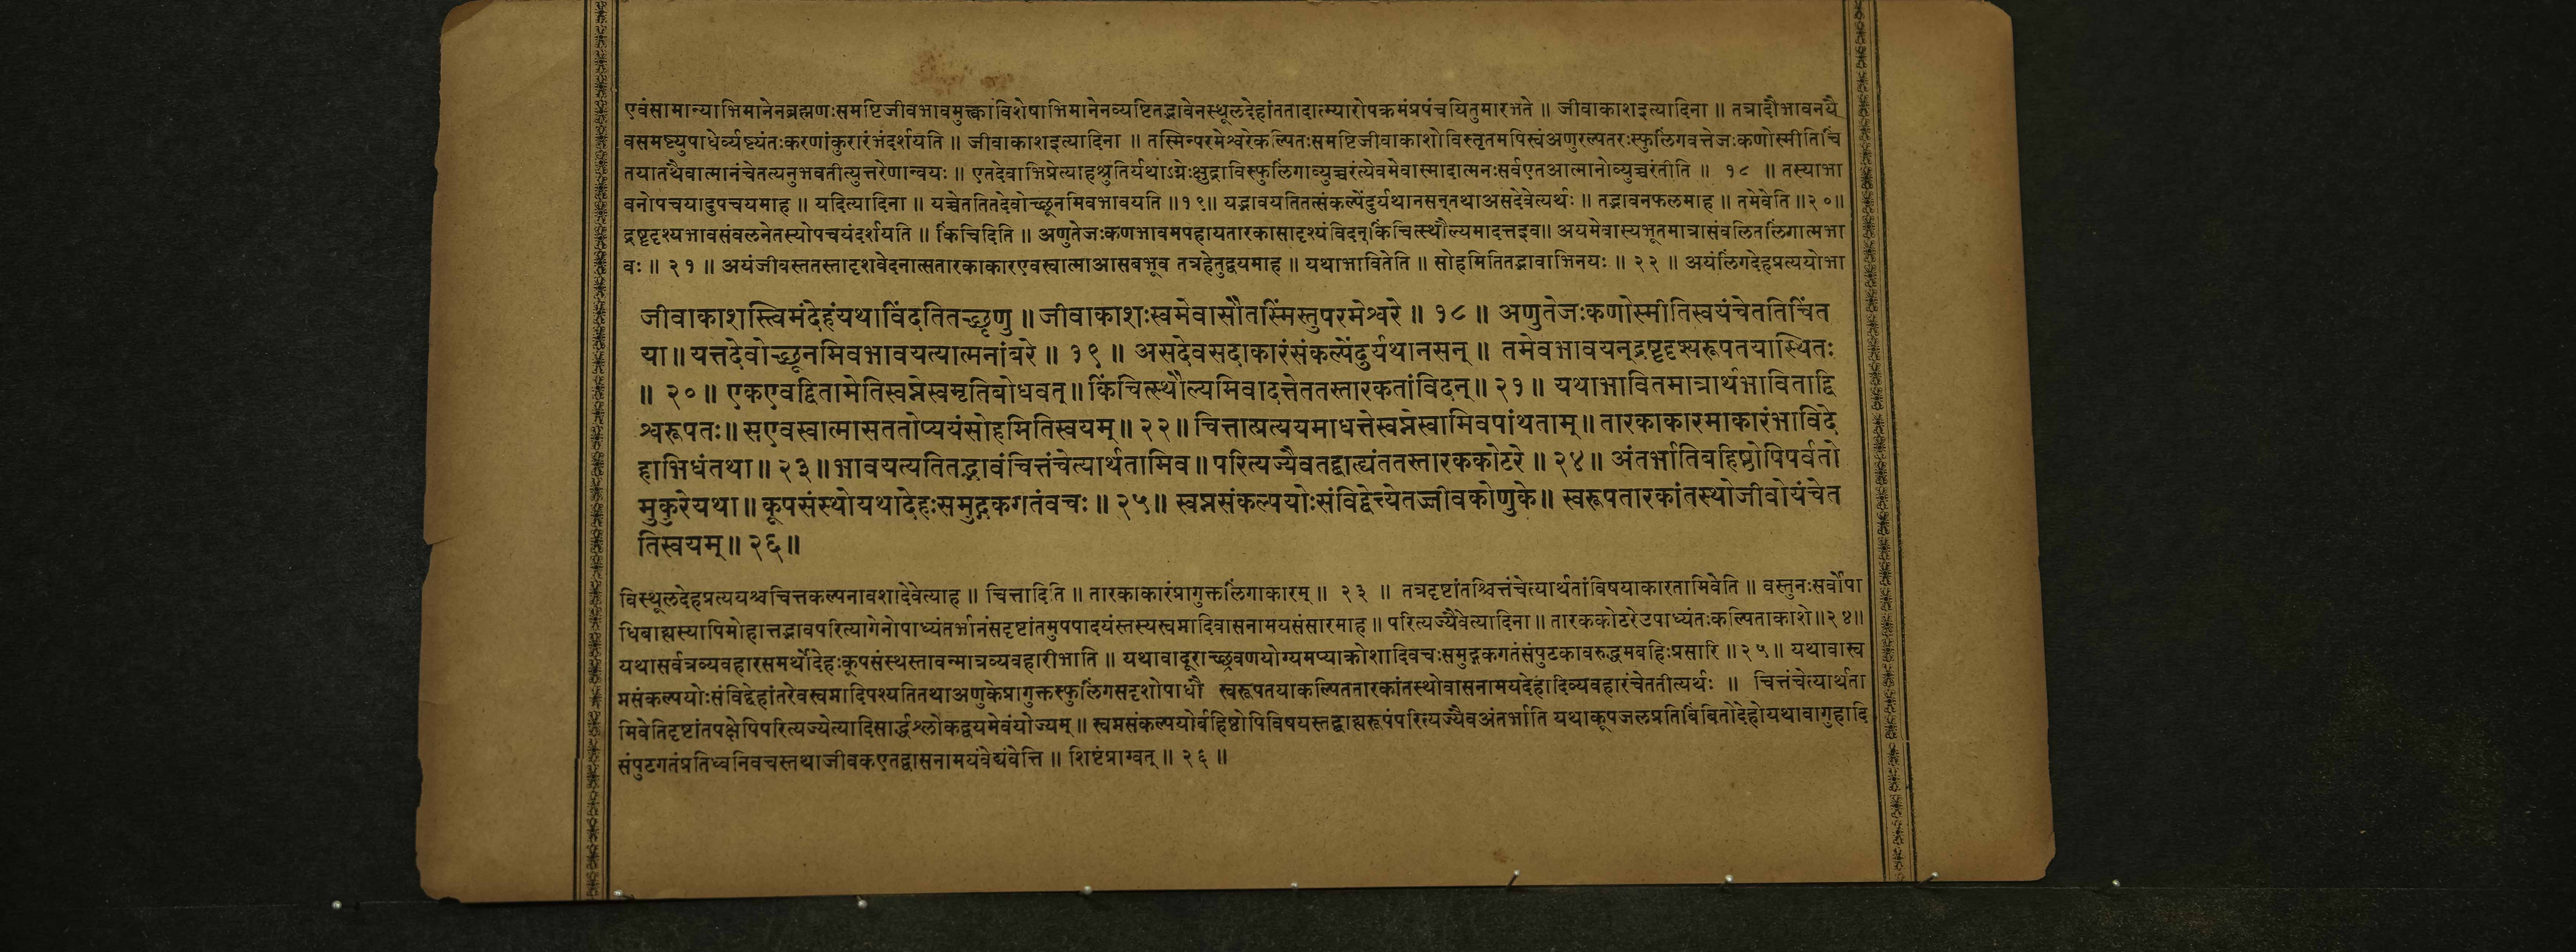 एवंसामान्याभिमानेनब्रह्मणःसमष्टिजीवभावमुक्त्वाविशेषाभिमानेनव्यष्टितद्भावेनस्थूलदेहांततादात्म्यारोपक्रमंप्रपंचयितुमारभते ॥ जीवाकाशइत्यादिना ॥ तत्रादौभावनयै
वसमष्ट्युपाधेर्व्यष्ट्यंतःकरणांकुरारंभंदर्शयति ॥ जीवाकाशइत्यादिना ॥ तस्मिन्परमेश्वरेकल्पितःसमष्टिजीवाकाशोविस्तृतमपिस्वंअणुरल्पतरःस्फुलिंगवत्तेजःकणोस्मीतिचिं
तयातथैवात्मानंचेतत्यनुभवतीत्युत्तरेणान्वयः ॥ एतदेवाभिप्रेत्याहश्रुतिर्यथाऽग्नेःक्षुद्राविस्फुलिंगाव्युच्चरंत्येवमेवास्मादात्मनःसर्वएतआत्मानोव्युच्चरंतीति ॥ १८ ॥ तस्याभा
वनोपचयादुपचयमाह ॥ यदित्यादिना ॥ यच्चेततितदेवोच्छूनमिवभावयति ॥१९॥ यद्भावयतितत्संकल्पेंदुर्यथानसन्तथाअसदेवेत्यर्थः ॥ तद्भावनफलमाह ॥ तमेवेति ॥२०॥
द्रष्टृदृश्यभावसंवलनेतस्योपचयंदर्शयति ॥ किंचिदिति ॥ अणुतेजःकणभावमपहायतारकासादृश्यंविदन्किंचित्स्थौल्यमादत्तइव॥ अयमेवास्यभूतमात्रासंवलितलिंगात्मभा
वः ॥ २१ ॥ अयंजीवस्ततस्तादृशवेदनात्सतारकाकारएवस्वात्माआसबभूव तत्रहेतुद्वयमाह ॥ यथाभावितेति ॥ सोहमितितद्भावाभिनयः ॥ २२ ॥ अयंलिंगदेहप्रत्ययोभा
जीवाकाशस्त्विमंदेहंयथाविंदतितच्छृणु ॥ जीवाकाशःस्वमेवासौतस्मिंस्तुपरमेश्वरे ॥ १८ ॥ अणुतेजःकणोस्मीतिस्वयंचेततिचिंत
या ॥ यत्तदेवोच्छूनमिवभावयत्यात्मनांबरे ॥ १९ ॥ असदेवसदाकारंसंकल्पेंदुर्यथानसन् ॥ तमेवभावयन्द्रष्टृदृश्यरूपतयास्थितः
॥ २० ॥ एकएवद्वितामेतिस्वप्नेस्वमृतिबोधवत् ॥ किंचित्स्थौल्यमिवादत्तेततस्तारकतांविदन् ॥ २१ ॥ यथाभावितमात्रार्थभाविताद्वि
श्वरूपतः ॥ सएवस्वात्मासततोप्ययंसोहमितिस्वयम् ॥ २२ ॥ चित्तात्प्रत्ययमाधत्तेस्वप्नेस्वामिवपांथताम् ॥ तारकाकारमाकारंभाविदे
हाभिधंतथा ॥ २३ ॥ भावयत्यतितद्भावंचित्तंचेत्यार्थतामिव ॥ परित्यज्यैवतद्बाह्यंततस्तारककोटरे ॥ २४ ॥ अंतर्भातिबहिष्ठोपिपर्वतो
मुकुरेयथा ॥ कूपसंस्थोयथादेहःसमुद्गकगतंवचः ॥ २५ ॥ स्वप्नसंकल्पयोःसंविद्वेत्त्येतज्जीवकोणुके ॥ स्वरूपतारकांतस्थोजीवोयंचेत
तिस्वयम् ॥ २६ ॥
विस्थूलदेहप्रत्ययश्चचित्तकल्पनावशादेवेत्याह ॥ चित्तादिति ॥ तारकाकारंप्रागुक्तलिंगाकारम् ॥ २३ ॥ तत्रदृष्टांतश्चित्तंचेत्यार्थतांविषयाकारतामिवेति ॥ वस्तुनःसर्वोपा
धिबाह्यस्यापिमोहात्तद्भावपरित्यागेनोपाध्यंतर्भानंसदृष्टांतमुपपादयंस्तस्यस्वप्नादिवासनामयसंसारमाह ॥ परित्यज्यैवेत्यादिना ॥ तारककोटरेउपाध्यंतःकल्पिताकाशे॥२४॥
यथासर्वत्रव्यवहारसमर्थोदेहःकूपसंस्थस्तावन्मात्रव्यवहारीभाति ॥ यथावादूराच्छ्रवणयोग्यमप्याक्रोशादिवचःसमुद्गकगतंसंपुटकावरुद्धमबहिःप्रसारि ॥२५॥ यथावास्व
प्नसंकल्पयोःसंविद्देहांतरेवस्वप्नादिपश्यतितथाअणुकेप्रागुक्तस्फुलिंगसदृशोपाधौ स्वरूपतयाकल्पिततारकांतस्थोवासनामयदेहादिव्यवहारंचेततीत्यर्थः ॥ चित्तंचेत्यार्थता
मिवेतिदृष्टांतपक्षेपिपरित्यज्येत्यादिसार्द्धश्लोकद्वयमेवंयोज्यम् ॥ स्वप्नसंकल्पयोर्बहिष्ठोपिविषयस्तद्बाह्यरूपंपरित्यज्यैवअंतर्भाति यथाकूपजलप्रतिबिंबितोदेहोयथावागुहादि
संपुटगतंप्रतिध्वनिवचस्तथाजीवकएतद्वासनामयंवेद्यंवेत्ति ॥ शिष्टंप्राग्वत् ॥ २६ ॥